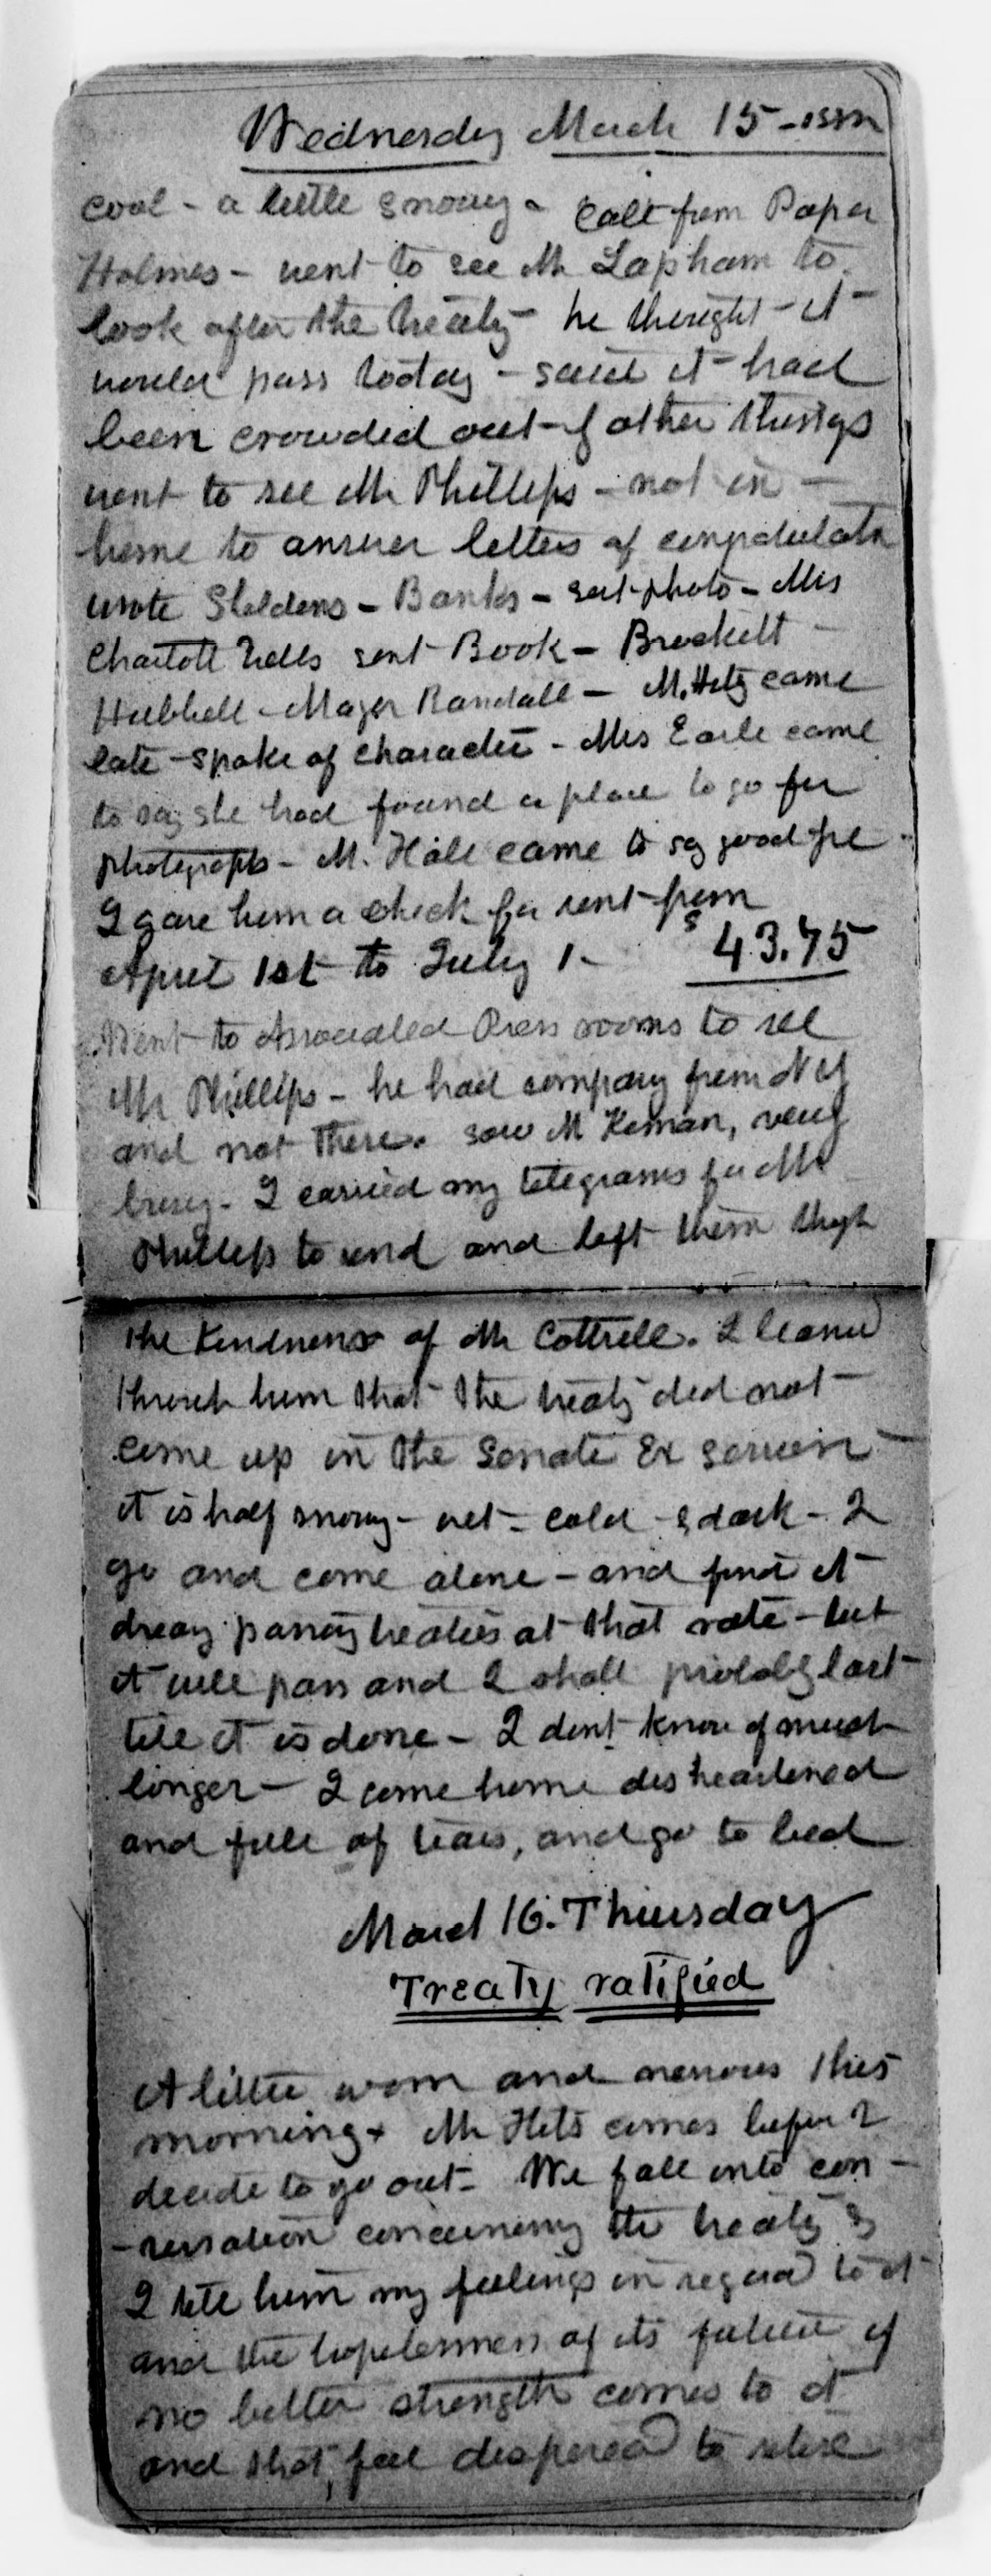 Wednesday March 15 - 1882
Cool - a little snowy - Call from Papa
Holmes - went to see Mr Lapham to
look after the treaty - he thought - it
would pass today - said it had
been crowded out of other things
went to see Mr Phillips - not in -
home to answer letters of
wrote Sheldons - Banks - sent photo - Mis
sent Book - Brockett -
Hubbell - Major Randall - M. Hitz came
late - spoke of character - Mrs Earle came
to say she had found a place to go for
photographs - M. Hale came to say good
I gave him a check for rent from
April 1st to July 1 - $ 43.75
Went to Associated Press rooms to see
Mr Phillips - he had company from N Y
and not there. saw M Keman, very
busy - I carried my telegrams for Mr
Phillips to send and left them
the Kindness of Mr Cottrell. I learned
through him that the treaty did not
come up in the Senate Ex session -
it is half snowy - wet - cold - & dark - I
go and come alone - and find it
dreary passing treaties at that rate - but
it will pass and I shall probably last
till it is done - I dont know of much
longer - I come home disheartened
and full of tears, and go to bed
March 16. Thursday
Treaty ratified
A little worn and nervous this
morning. Mr Hits comes before I
decide to go out - We fall into con -
- versation concerning the treaty &
I tell him my feelings in regard to it
and the hopelessness of its future if
no better strength comes to it
and that, feel disposed to retire